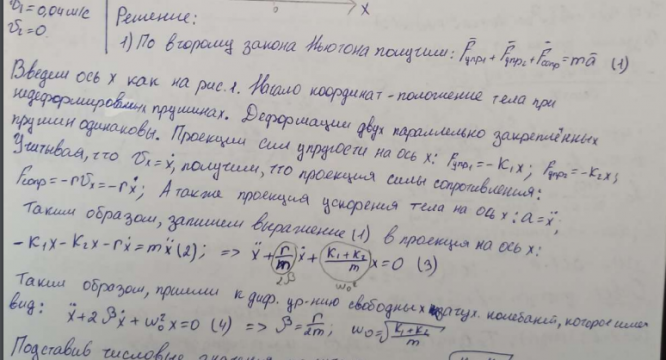 v₁=0,04м/с
v₂=0
x
Решение:
1) По второму закона Ньютона получим: F̄упр1+F̄упр2+F̄сопр=mā (1)
Введем ось x как на рис.1. Начало координат - положение тела при
недеформированных пружинах. Деформации двух параллельно закреплённых
пружин одинаковы. Проекции сил упругости на ось x: Fупр1=-k₁x; Fупр2=-k₂x;
Учитывая, что vₓ=ẋ, получим, что проекция силы сопротивления:
Fсопр=-rvₓ=-rẋ; А также проекция ускорения тела на ось x: a=ẍ;
Таким образом, запишем выражение (1) в проекция на ось x:
-k₁x-k₂x-rẋ=mẍ (2); => ẍ+(r/m)ẋ+((k₁+k₂)/m)x=0 (3)
2β ω₀²
Таким образом, пришли к диф. ур-нию свободных затух. колебаний, которое имеет
вид: ẍ+2βẋ+ω₀²x=0 (4) => β=r/2m; ω₀=√((k₁+k₂)/m)
Подставив числовые